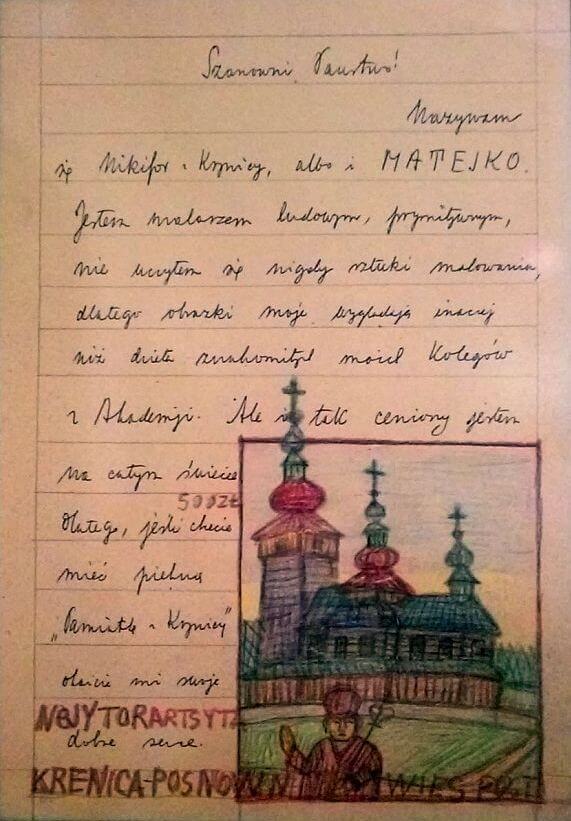 Szanowni Państwo!
Nazywam
się Nikifor z Krynicy, albo i MATEJKO.
Jestem malarzem ludowym, prymitywnym,
nie uczyłem się nigdy sztuki malowania,
dlatego obrazki moje wyglądają inaczej
niż dzieła znakomitych moich Kolegów
z Akademji. Ale i tak ceniony jestem
na całym świecie
500ZŁ
Dlatego, jeśli chcecie
mieć piękną
"Pamiątkę z Krynicy"
okażcie mi swoje
NEJYTORARTSYTZ
dobre serce.
KRENICA-POSNOWN WIES